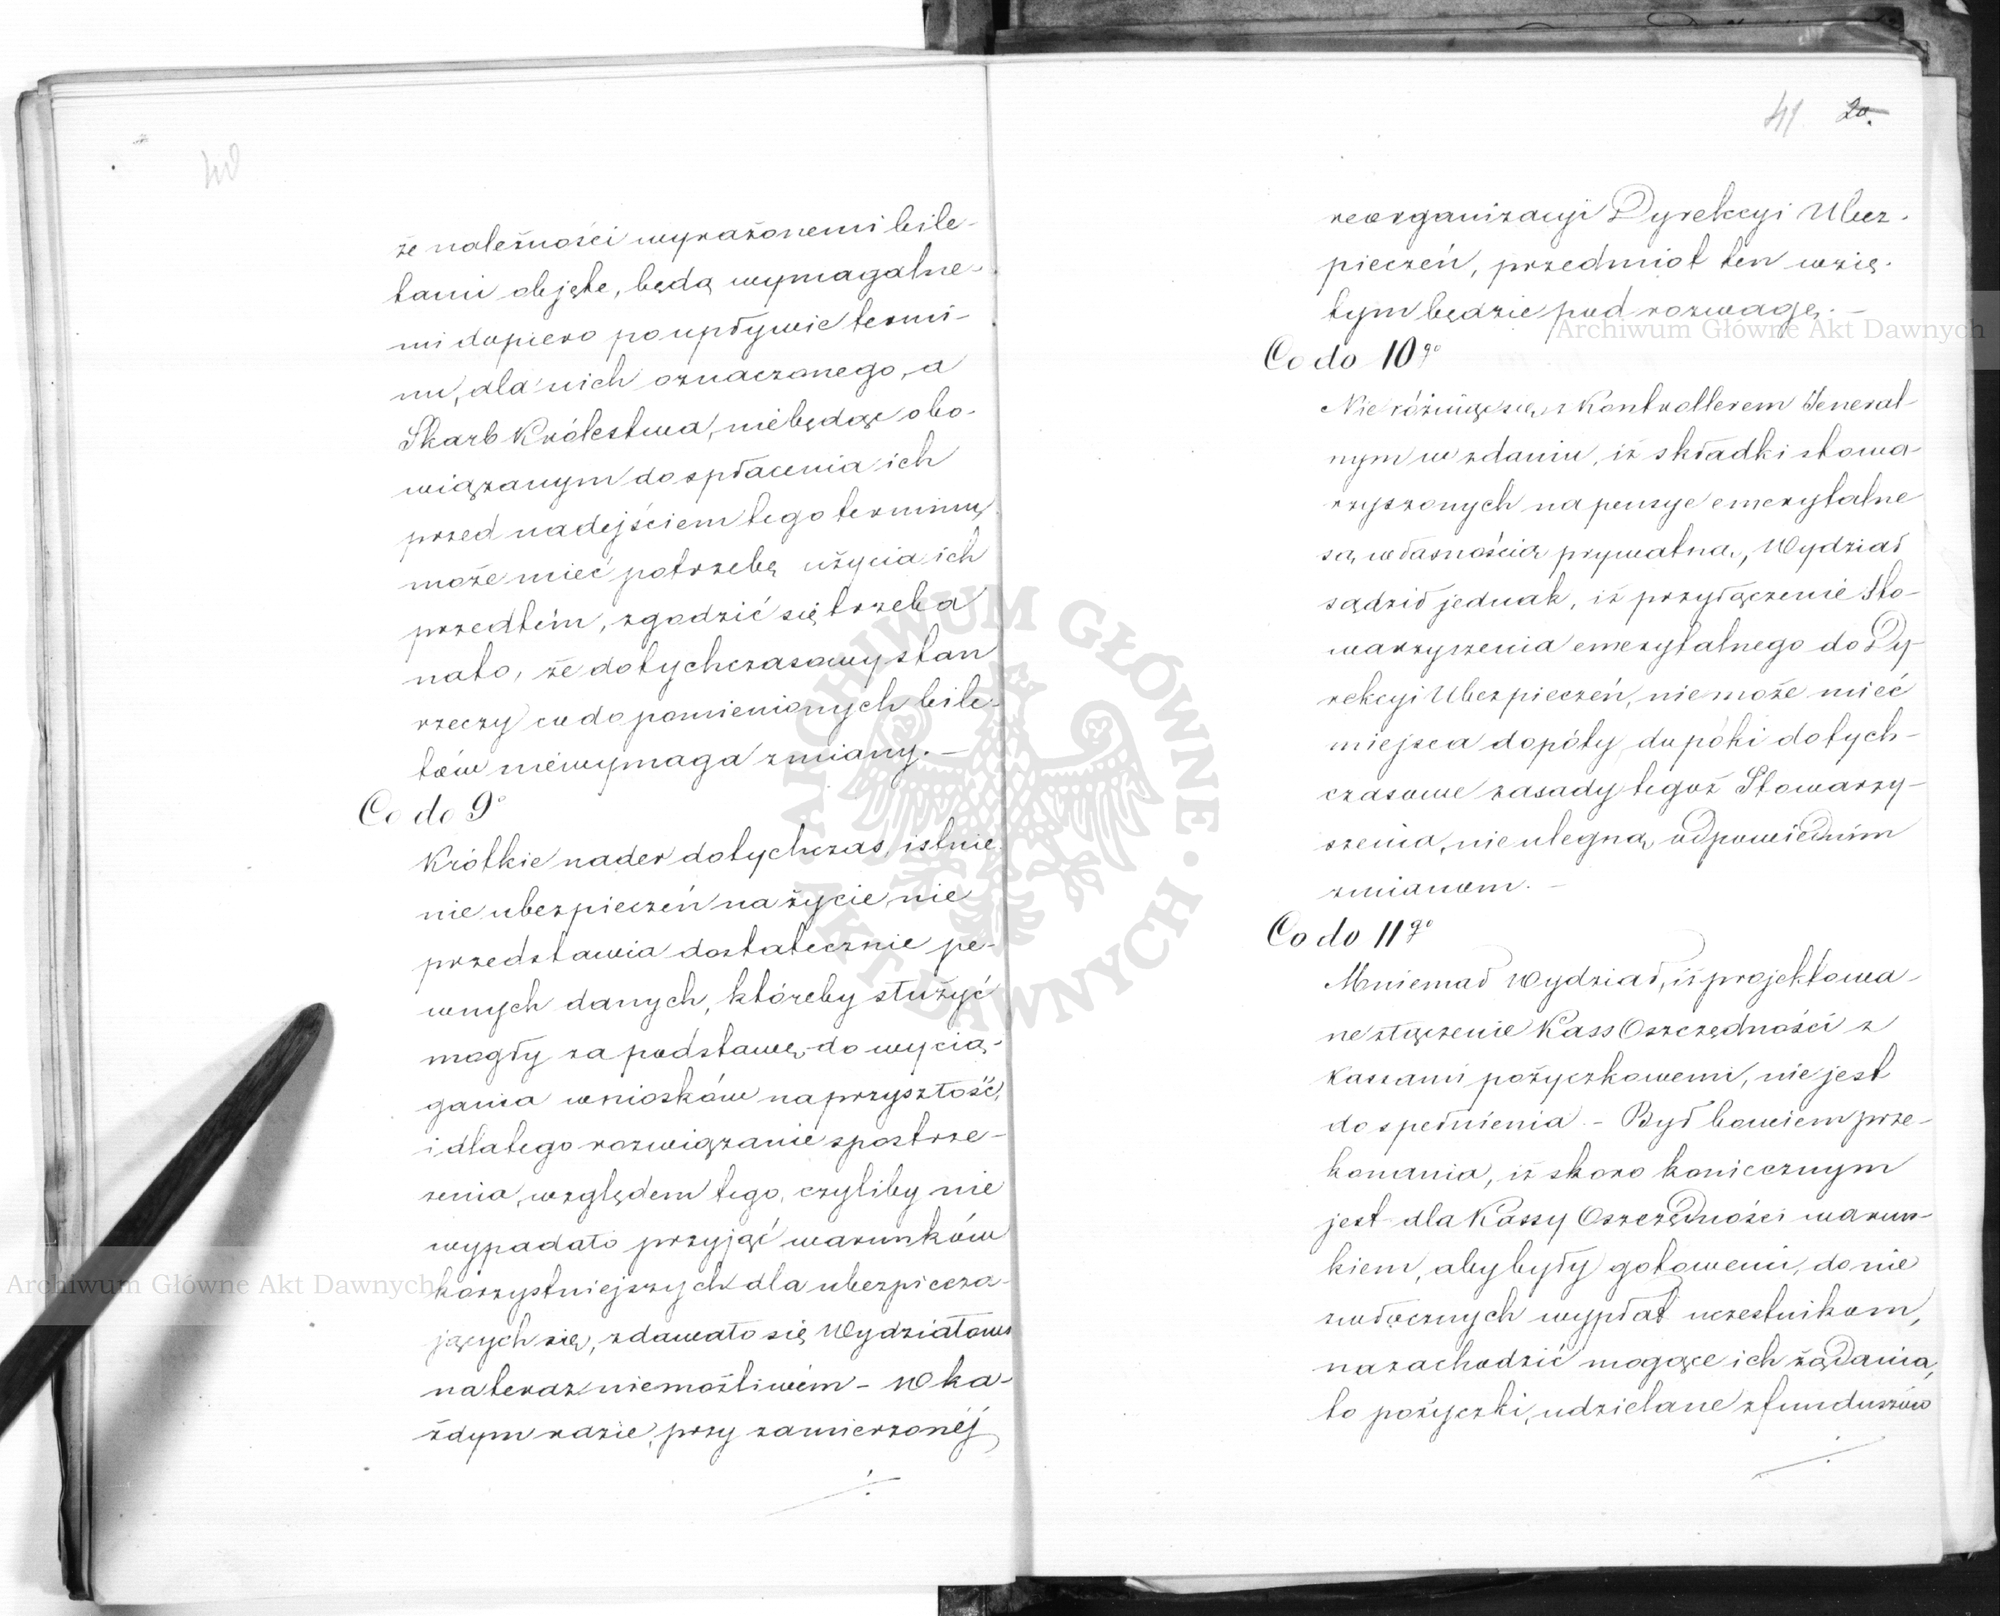 40
że należności wyrażonemi bile-
tami objęte, będą wymagalne-
mi dopiero po upływie termi-
nu, dla nich oznaczonego, a
Skarb Królestwa, niebędąc obo-
wiązanym do spłacenia ich
przed nadejściem tego terminu,
może mieć potrzebę użycia ich
przedtém, zgodzić się trzeba
na to, że dotychczasowy stan
rzeczy co do pomienionych bile-
tów niewymaga zmiany. —
Co do 9°
Krótkie nader dotychczas, istnie
nie ubezpieczeń na życie, nie
przedstawia dostatecznie pe-
wnych danych, któreby służyć
mogły za podstawę do wycią-
gania wniosków na przyszłość,
i dlatego rozwiązanie spostrze-
żenia, względem tego, czyliby nie
wypadało przyjąć warunków
korzystniejszych dla ubezpiecza-
jących się, zdawało się Wydziałowi
na teraz niemożliwém — W ka-
żdym razie, przy zamierzonéj
41 20.
reorganizacyi Dyrekcyi Ubez-
pieczeń, przedmiot ten wzię-
tym będzie pod rozwagę. —
Co do 10go
Nie różniąc się z Kontrollerem Jeneral-
nym w zdaniu, iż składki stowa-
rzyszonych na pensye emerytalne
są własnością prywatną, Wydział
sądził jednak, iż przyłączenie Sto-
warzyszenia emerytalnego do Dy-
rekcyi Ubezpieczeń, nie może mieć
miejsca dopóty, dopóki dotych-
czasowe zasady tegoż Stowarzy-
szenia, nie ulegną odpowiednim
zmianom. —
Co do 11go
Mniemał Wydział, iż projektowa-
ne złączenie Kass Oszczędności z
Kassami pożyczkowemi, nie jest
do spełnienia. — Był bowiem prze-
konania, iż skoro koniecznym
jest dla Kassy Oszczędności warun-
kiem, aby były gotowemi, do nie
zwłocznych wypłat uczestnikom,
na zachodzić mogące ich żądania,
to pożyczki, udzielane z funduszów
Archiwum Główne Akt Dawnych
Archiwum Główne Akt Dawnych
ARCHIWUM GŁÓWNE AKT DAWNYCH